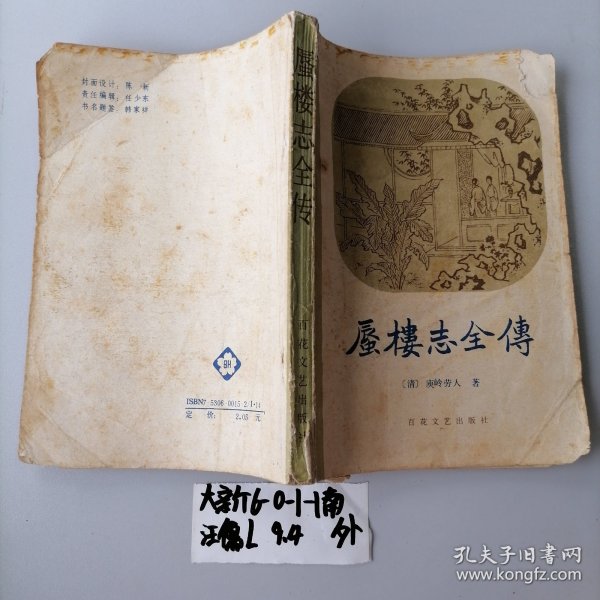 封面设计：陈新
责任编辑：任少东
书名题签：韩家祥
BH
ISBN7-5306-0015-2/I·14
定价：2.05元
蜃楼志全传
百花文艺出版社
蜃樓志全傳
〔清〕庾岭劳人 著
百花文艺出版社
G-0-1-1南
9.4 外
孔夫子旧书网
www.kongfz.com